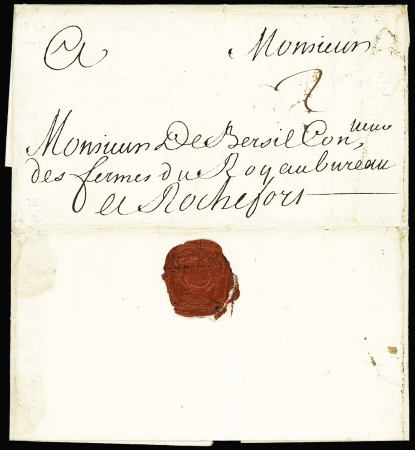 A Monsieur
2
Monsieur De Bersil Con
des fermes du Roy au bureau
a Rochefort